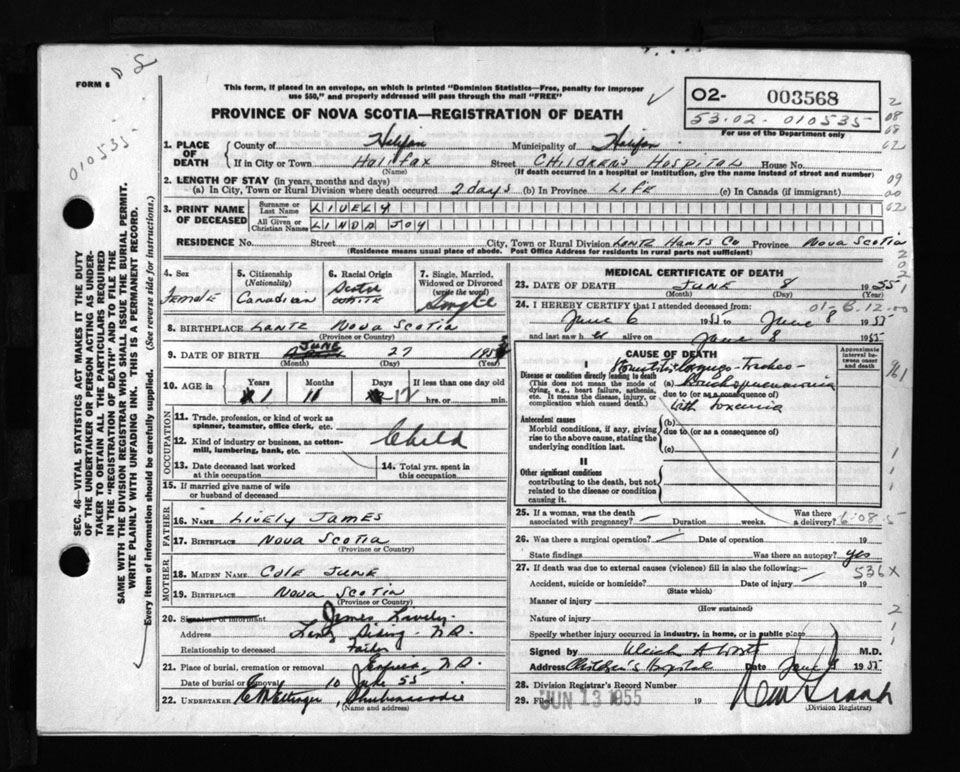 FORM 6
This form, if placed in an envelope, on which is printed "Dominion Statistics—Free, penalty for improper
use $50," and properly addressed will pass through the mail "FREE"
02- 003568
53.02. 010535
For use of the Department only
010535-
PROVINCE OF NOVA SCOTIA—REGISTRATION OF DEATH
SEC. 46—VITAL STATISTICS ACT MAKES IT THE DUTY
OF THE UNDERTAKER OR PERSON ACTING AS UNDER-
TAKER TO OBTAIN ALL THE PARTICULARS REQUIRED
IN THE "REGISTRATION OF DEATH" AND TO FILE THE
SAME WITH THE DIVISION REGISTRAR WHO SHALL ISSUE THE BURIAL PERMIT.
WRITE PLAINLY WITH UNFADING INK. THIS IS A PERMANENT RECORD.
Every item of information should be carefully supplied. (See reverse side for instructions.)
1. PLACE OF DEATH County of Halifax Municipality of Halifax
If in City or Town Halifax Street Children's Hospital House No.
(Name) (If death occurred in a hospital or institution, give the name instead of street and number)
2. LENGTH OF STAY (in years, months and days)
(a) In City, Town or Rural Division where death occurred 2 days (b) In Province Life (c) In Canada (if immigrant)
3. PRINT NAME OF DECEASED Surname or Last Name LIVELY
All Given or Christian Names LINDA JOY
RESIDENCE No. Street City, Town or Rural Division Lantz Hants Co Province Nova Scotia
(Residence means usual place of abode. Post Office Address for residents in rural parts not sufficient)
4. Sex Female
5. Citizenship (Nationality) Canadian
6. Racial Origin Scotch White
7. Single, Married, Widowed or Divorced (write the word) Single
8. BIRTHPLACE Lantz Nova Scotia
(Province or Country)
9. DATE OF BIRTH June 27 1953
(Month) (Day) (Year)
10. AGE in Years 1 Months Days 12 If less than one day old hrs. or min.
OCCUPATION
11. Trade, profession, or kind of work as spinner, teamster, office clerk, etc. Child
12. Kind of industry or business, as cotton-mill, lumbering, bank, etc.
13. Date deceased last worked at this occupation
14. Total yrs. spent in this occupation
15. If married give name of wife or husband of deceased
FATHER
16. NAME Lively James
17. BIRTHPLACE Nova Scotia
(Province or Country)
MOTHER
18. MAIDEN NAME Cole June
19. BIRTHPLACE Nova Scotia
(Province or Country)
20. Signature of informant James Lively
Address Lantz Siding N.S.
Relationship to deceased Father
21. Place of burial, cremation or removal Enfield, N.S.
Date of burial or removal 10 June 55
22. UNDERTAKER Ettinger, Shubenacadie
(Name and address)
MEDICAL CERTIFICATE OF DEATH
23. DATE OF DEATH June 8 1955
(Month) (Day) (Year)
24. I HEREBY CERTIFY that I attended deceased from:
June 6 1955 to June 8 1955
and last saw her alive on June 8 1955
CAUSE OF DEATH
Approximate interval between onset and death
I
Disease or condition directly leading to death
(This does not mean the mode of dying, e.g., heart failure, asthenia, etc. It means the disease, injury, or complication which caused death.)
(a) Stomatitis Laryngo-Tracheo-Bronchopneumonia
due to (or as a consequence of)
with toxemia
Antecedent causes
Morbid conditions, if any, giving rise to the above cause, stating the underlying condition last.
(b)
due to (or as a consequence of)
(c)
II
Other significant conditions
contributing to the death, but not related to the disease or condition causing it.
25. If a woman, was the death associated with pregnancy? Duration weeks. Was there a delivery?
26. Was there a surgical operation? Date of operation 19
State findings Was there an autopsy? Yes
27. If death was due to external causes (violence) fill in also the following:—
536X
Accident, suicide or homicide? Date of injury 19
(State which)
Manner of injury
(How sustained)
Nature of injury
Specify whether injury occurred in industry, in home, or in public place
Signed by M.D.
Address Children's Hospital Date June 8 1955
28. Division Registrar's Record Number
29. Filed JUN 13 1955 19
(Division Registrar)